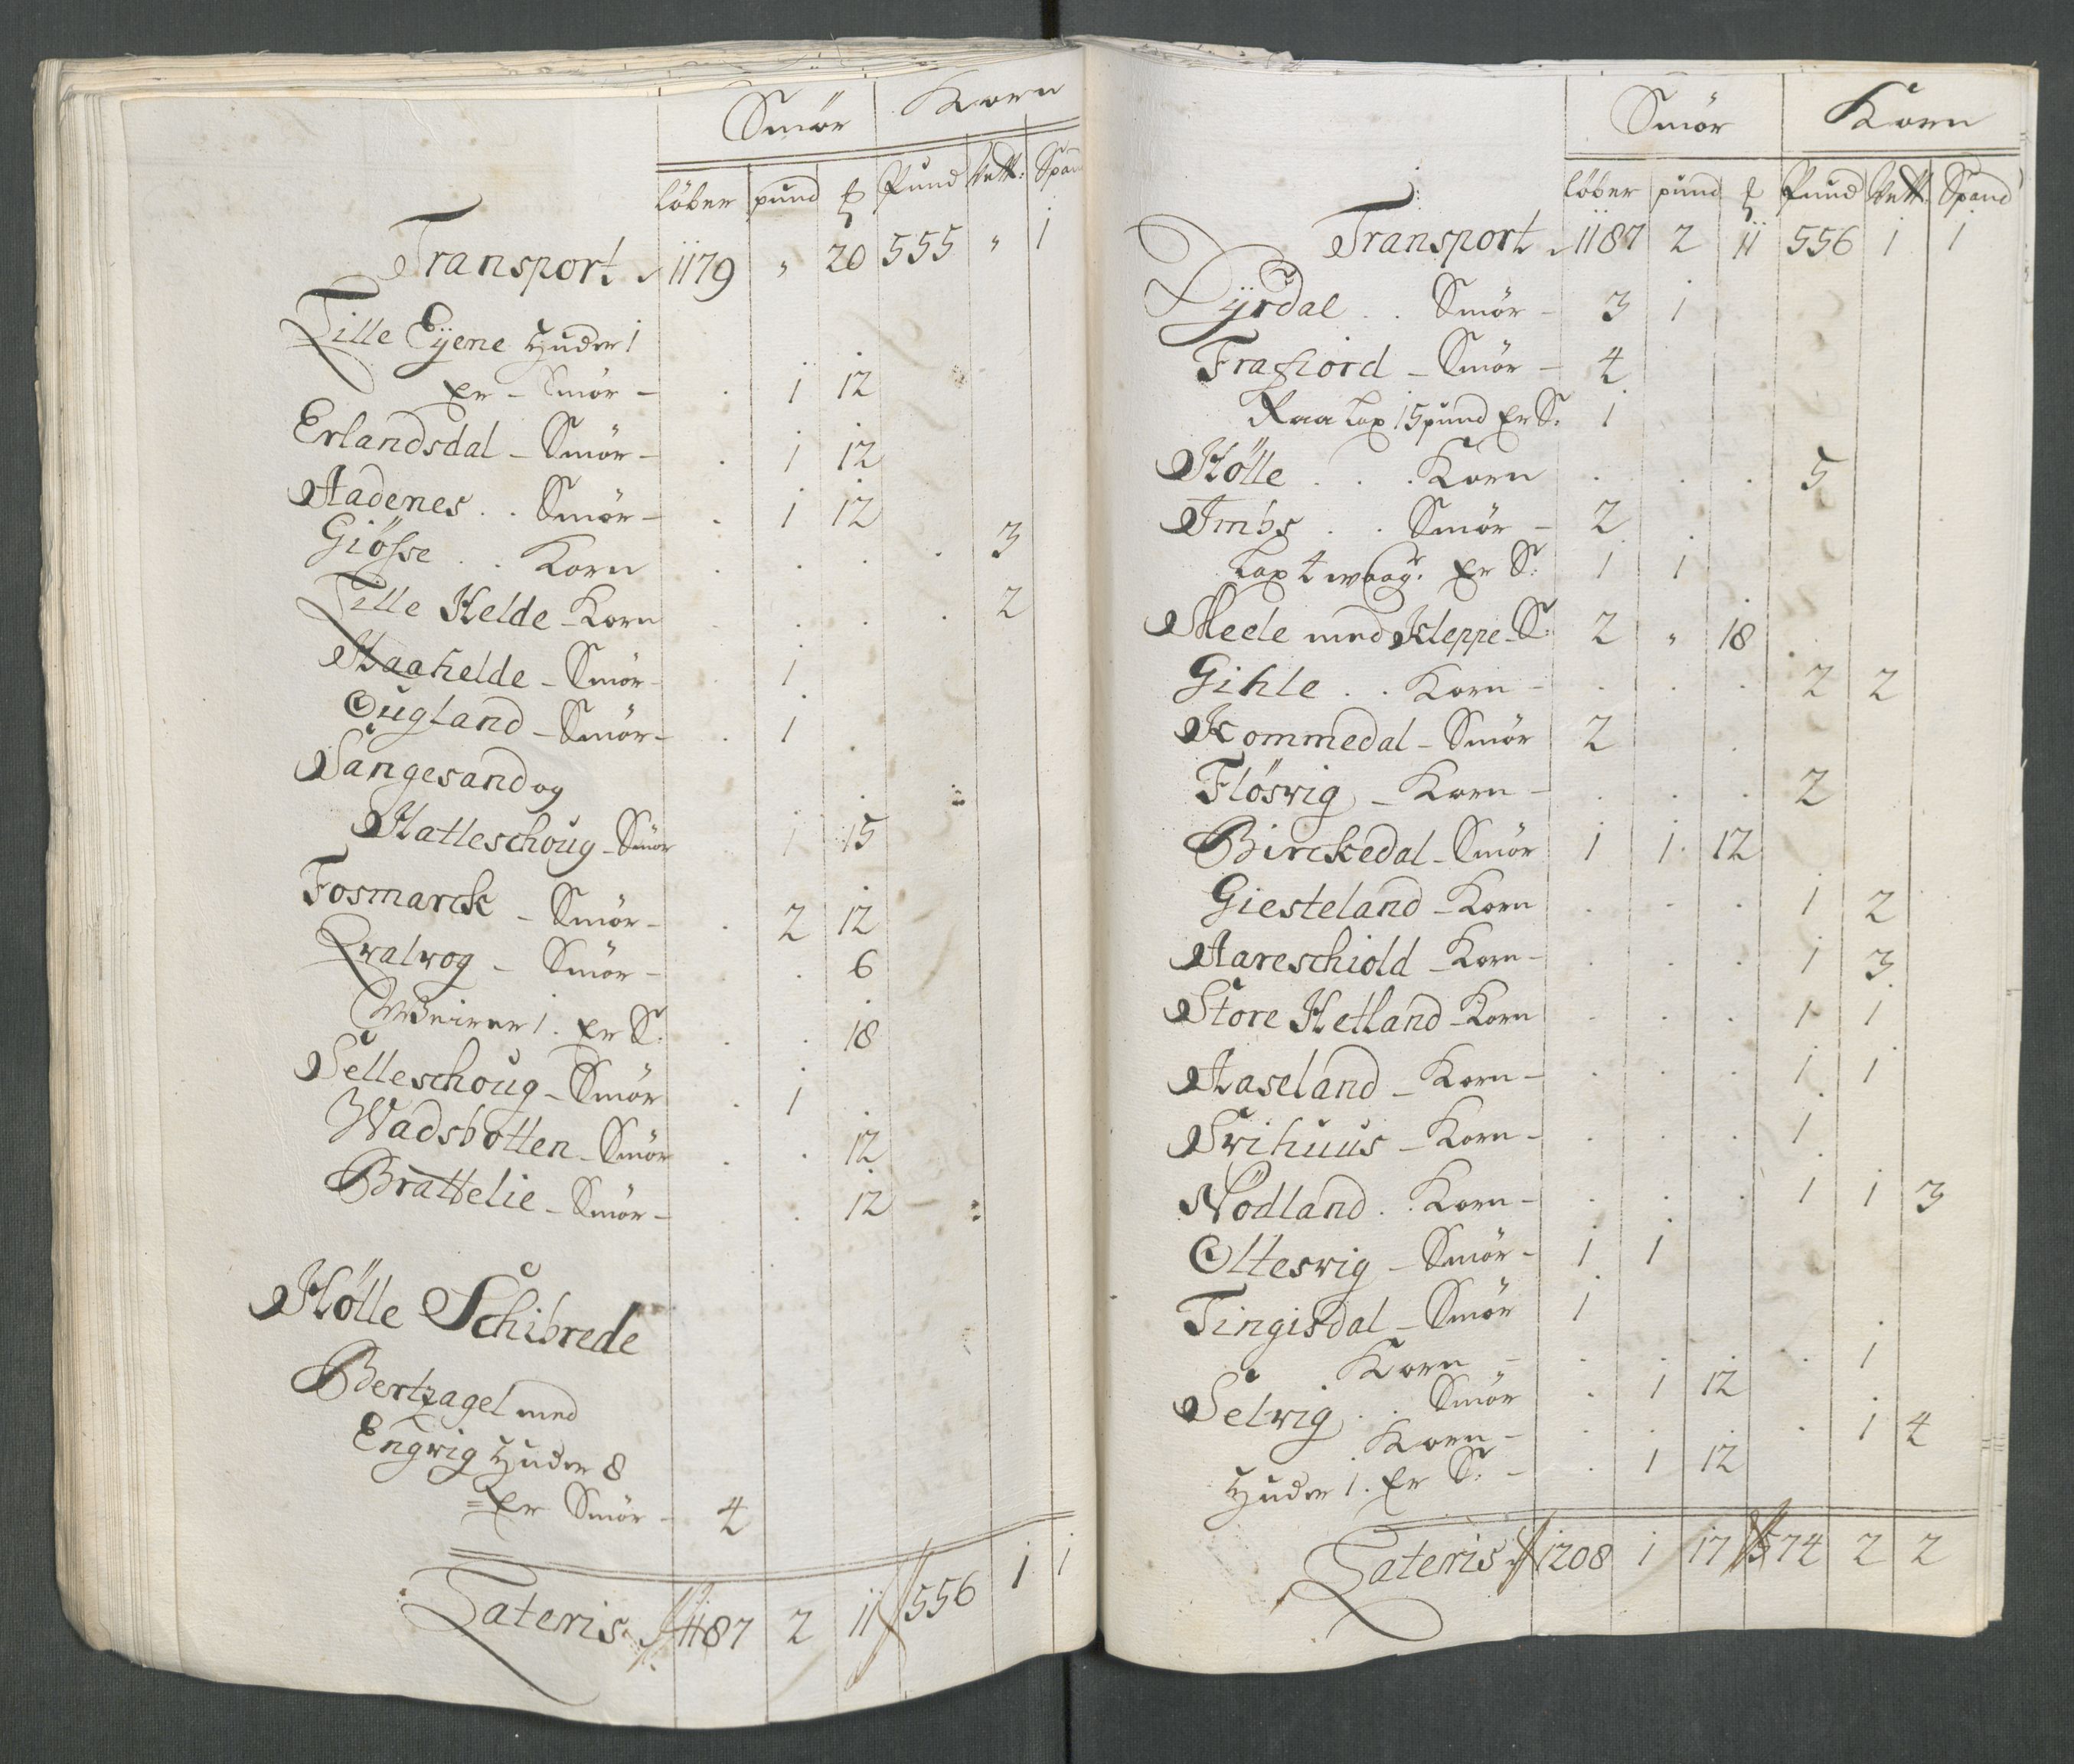 Smör Korn
löber pund ℔ Pund Vett: Span
Transport 1179 " 20 555 " 1
Lille Eÿene Huder 1
Er - Smör - . 1 12
Erlandsdal - Smör - . 1 12
Aadenes . . Smör - . 1 12
Giösse . . Korn . . . . 3
Lille Helde - Korn . . . . 2
Haahelde - Smör - . 1
Ougland - Smör - . 1
Sangesand og
Hatleschoug - Smör 1 15
Fosmarck - Smör - . 2 12
Qvalvog - Smör - . 6
Weirer 1. Er S. . . 18
Selleschoug - Smör . 1
Wadsbotten - Smör . . 12
Brattelie - Smör - . 12
Hölle Schibrede
Bertzagel med
Engvig Huder 8
Er Smör - 4
Lateris 1187 2 11 556 1 1
Smör Korn
löber pund ℔ Pund Vett. Spand
Transport 1187 2 11 556 1 1
Dÿrdal . . Smör - 3 1
Frafiord - Smör - 4
Raa Lax 15 pund Er S. 1
Hölle . . . Korn . . . 5
Imbs . . Smör - 2
Lax t waag. Er S: 1 1
Meele med Kleppe - S: 2 " 18
Gihle . . Korn - . . . 2 2
Kommedal - Smör 2
Flösvig - Korn - . . . 2
Birckedal - Smör 1 1 12
Giesteland - Korn . . . 1 2
Aareschiold - Korn - . . . 1 3
Store Hetland - Korn . . . 1 1
Aaseland - Korn - . . . 1 1
Svihuus - Korn - . . . 1
Nödland . . Korn - . . . 1 1 3
Oltesvig - Smör - 1 1
Tingisdal - Smör 1
Korn - . . . . 1
Selvig . . Smör . 1 12
Korn - . . . . 1 4
Huder 1. Er S: - . 1 12
Lateris 1208 1 17 574 2 2